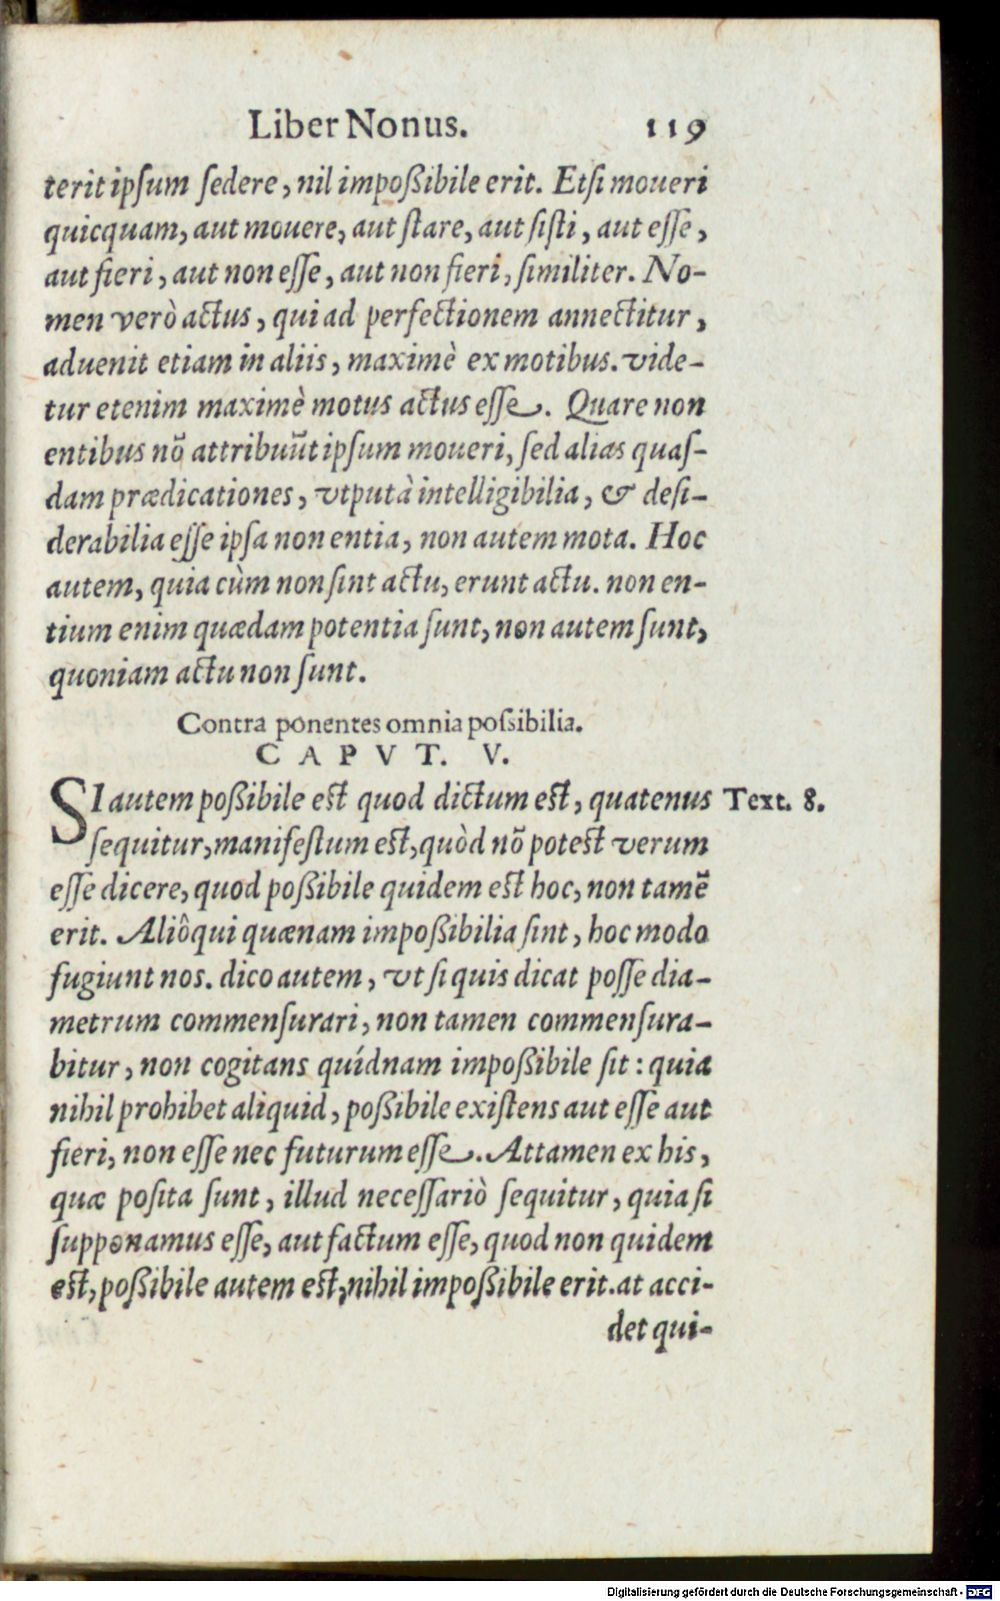 Liber Nonus. 119
terit ipſum ſedere, nil impoßibile erit. Et ſi moueri
quicquam, aut mouere, aut ſtare, aut ſiſti, aut eſſe,
aut fieri, aut non eſſe, aut non fieri, ſimiliter. No-
men verò actus, qui ad perfectionem annectitur,
aduenit etiam in aliis, maximè ex motibus. vide-
tur etenim maximè motus actus eſſe. Quare non
entibus nõ attribuũt ipſum moueri, ſed alias quaſ-
dam prædicationes, vtputà intelligibilia, & deſi-
derabilia eſſe ipſa non entia, non autem mota. Hoc
autem, quia cùm non ſint actu, erunt actu. non en-
tium enim quædam potentia ſunt, non autem ſunt,
quoniam actu non ſunt.
Contra ponentes omnia poſsibilia.
CAPVT. V.
SI autem poßibile est quod dictum est, quatenus Text. 8.
ſequitur, manifeſtum est, quòd nõ potest verum
eſſe dicere, quod poßibile quidem est hoc, non tamẽ
erit. Aliôqui quænam impoßibilia ſint, hoc modo
fugiunt nos. dico autem, vt ſi quis dicat poſſe dia-
metrum commenſurari, non tamen commenſura-
bitur, non cogitans quídnam impoßibile ſit: quia
nihil prohibet aliquid, poßibile exiſtens aut eſſe aut
fieri, non eſſe nec futurum eſſe. Attamen ex his,
quæ poſita ſunt, illud neceſſariò ſequitur, quia ſi
ſupponamus eſſe, aut factum eſſe, quod non quidem
est, poßibile autem est, nihil impoßibile erit. at acci-
det qui-
Digitalisierung gefördert durch die Deutsche Forschungsgemeinschaft - DFG